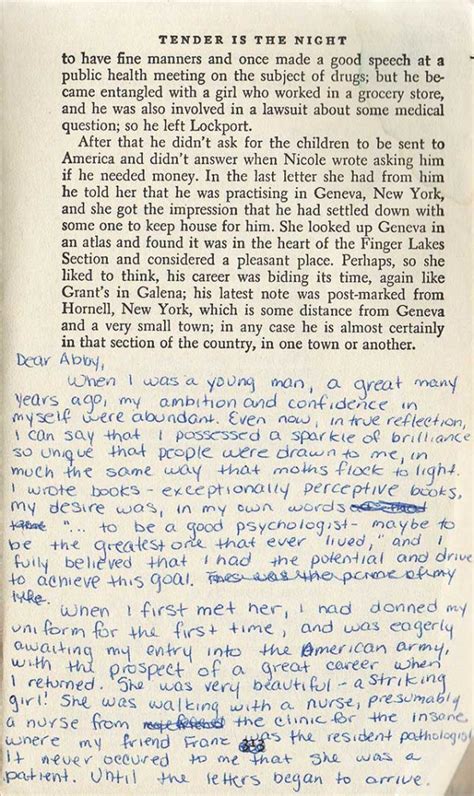 TENDER IS THE NIGHT
to have fine manners and once made a good speech at a
public health meeting on the subject of drugs; but he be-
came entangled with a girl who worked in a grocery store,
and he was also involved in a lawsuit about some medical
question; so he left Lockport.
After that he didn't ask for the children to be sent to
America and didn't answer when Nicole wrote asking him
if he needed money. In the last letter she had from him
he told her that he was practising in Geneva, New York,
and she got the impression that he had settled down with
some one to keep house for him. She looked up Geneva in
an atlas and found it was in the heart of the Finger Lakes
Section and considered a pleasant place. Perhaps, so she
liked to think, his career was biding its time, again like
Grant's in Galena; his latest note was post-marked from
Hornell, New York, which is some distance from Geneva
and a very small town; in any case he is almost certainly
in that section of the country, in one town or another.
Dear Abby,
When I was a young man, a great many
years ago, my ambition and confidence in
myself were abundant. Even now, in true reflection,
I can say that I possessed a sparkle of brilliance
so unique that people were drawn to me, in
much the same way that moths flock to light.
I wrote books - exceptionally perceptive books,
my desire was, in my own words
"... to be a good psychologist - maybe to
be the greatest one that ever lived," and I
fully believed that I had the potential and drive
to achieve this goal. This was the prime of my
life.
When I first met her, I had donned my
uniform for the first time, and was eagerly
awaiting my entry into the American army,
with the prospect of a great career when
I returned. She was very beautiful - a striking
girl! She was walking with a nurse, presumably
a nurse from the clinic for the insane
where my friend Franz was the resident pathologist
it never occured to me that she was a
patient. Until the letters began to arrive.